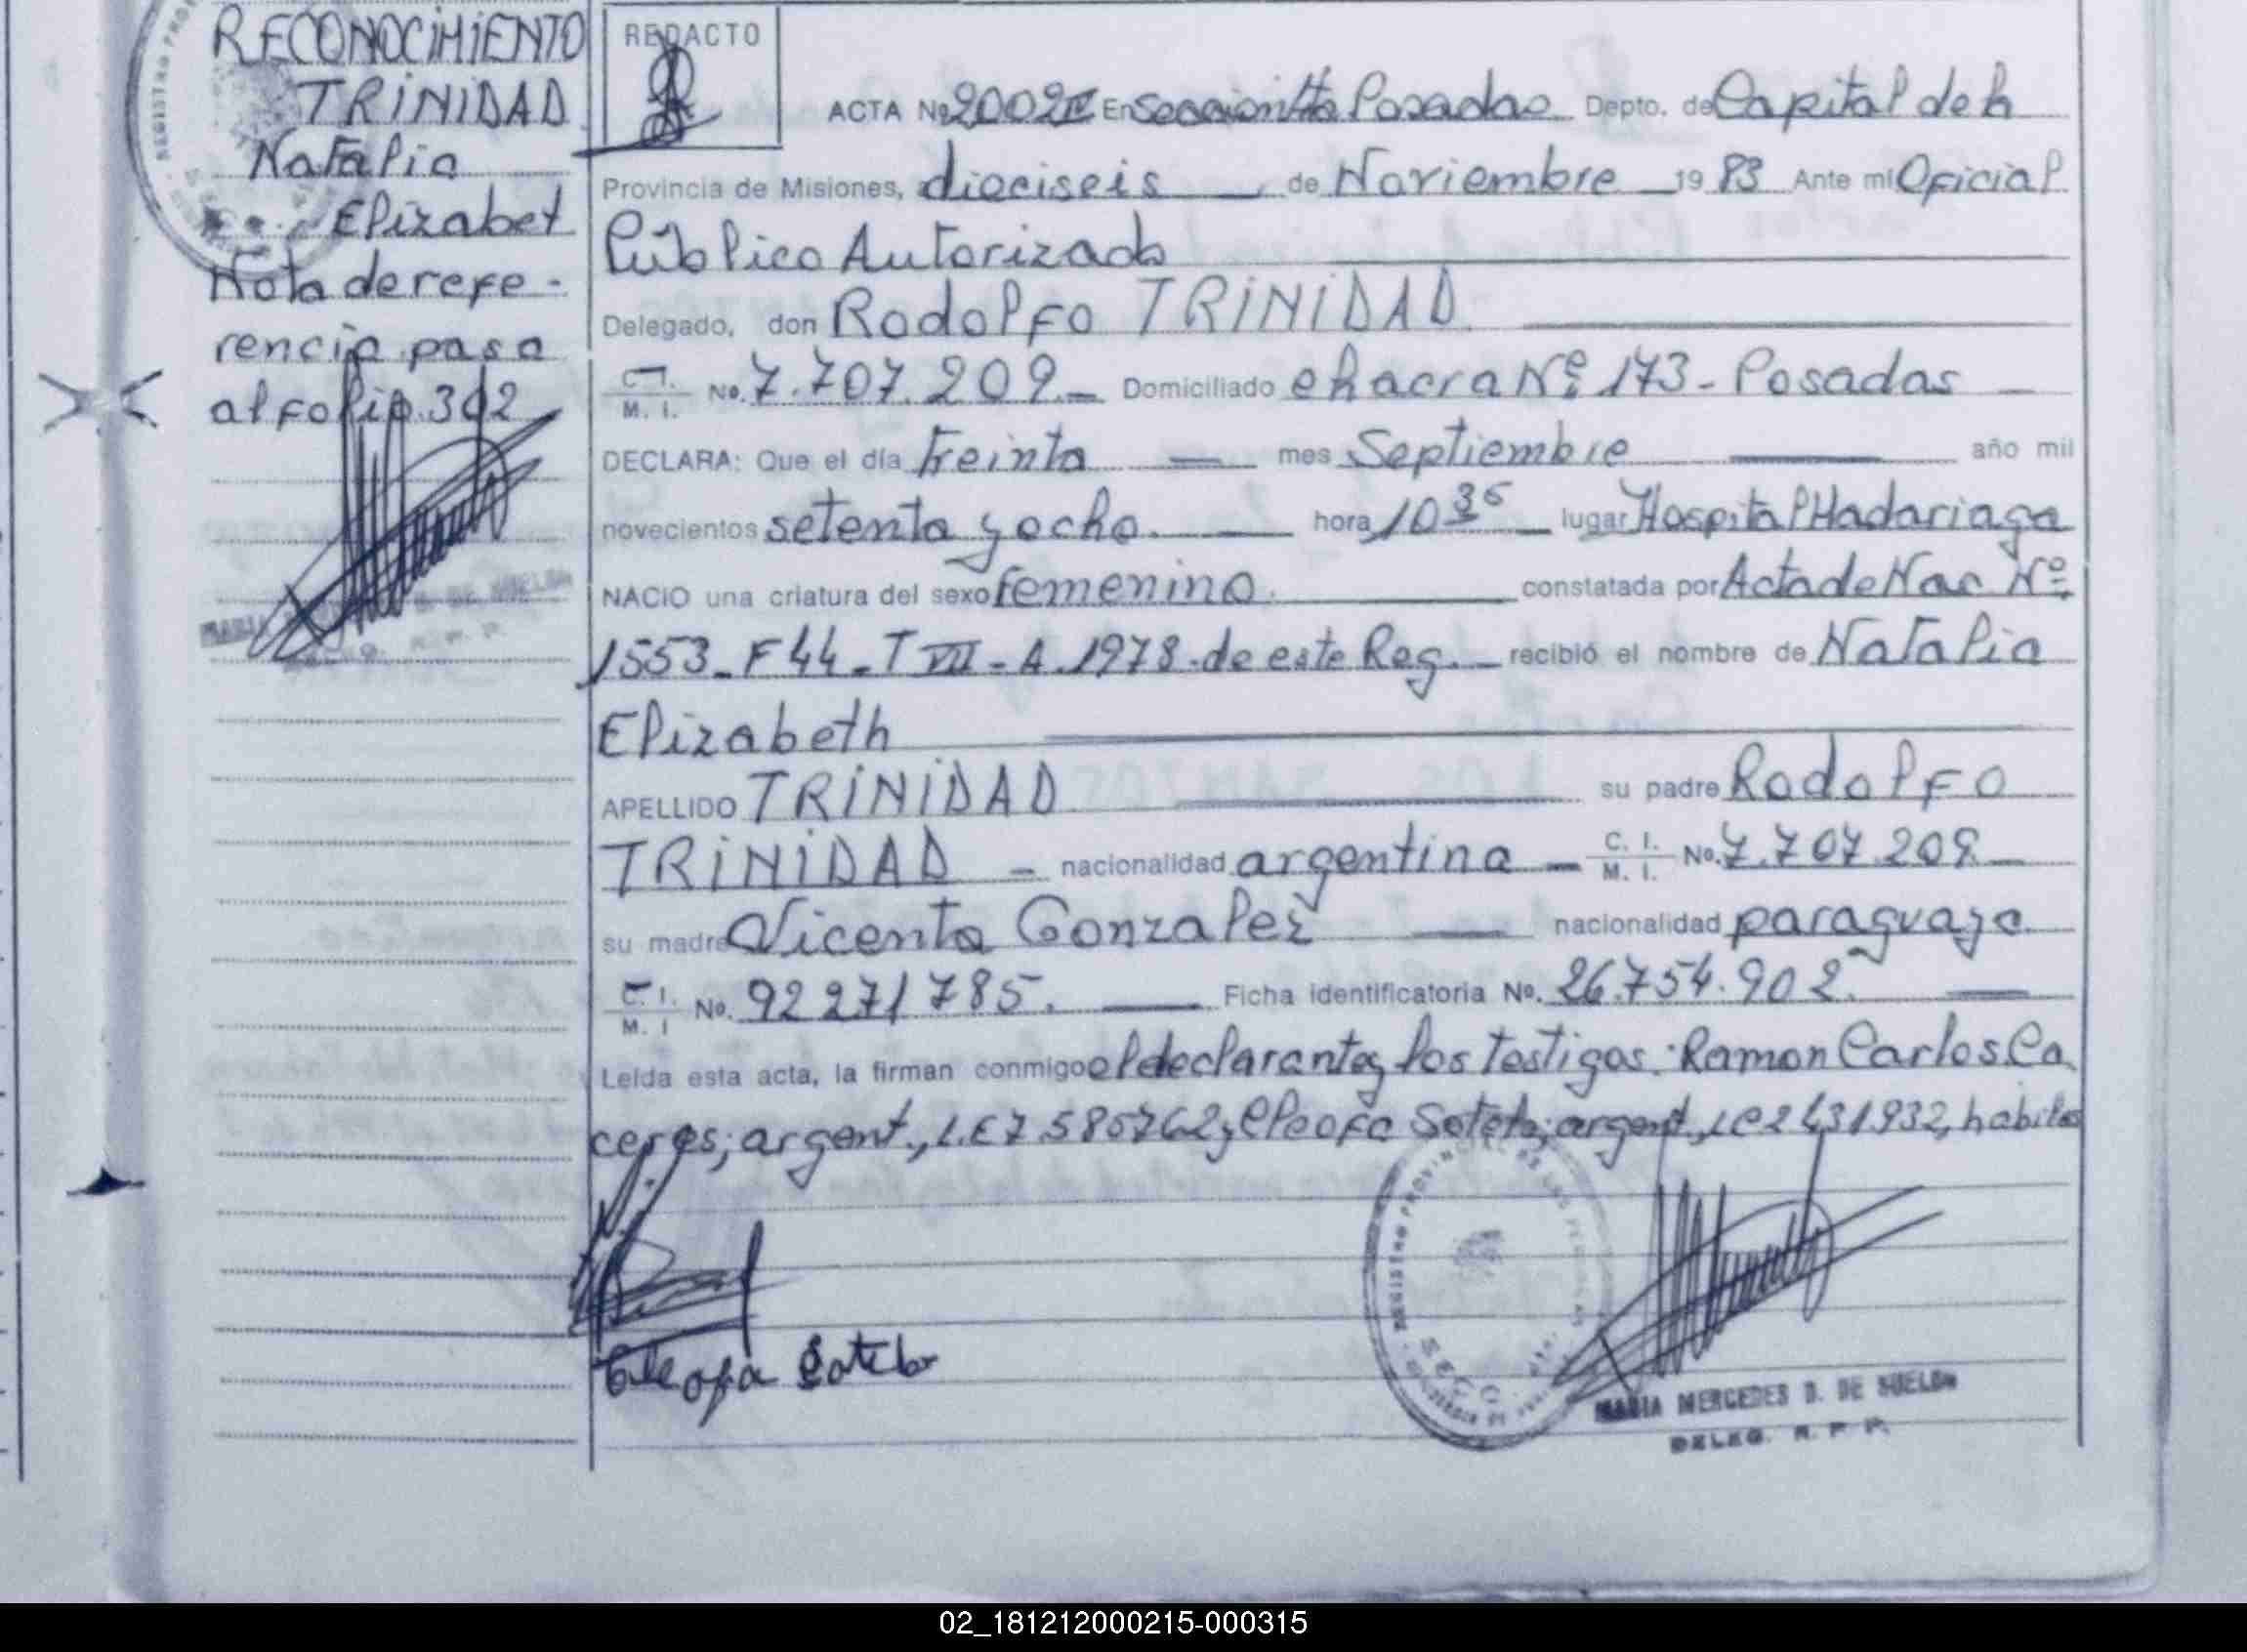 RECONOCIMIENTO
TRINIDAD
Natalia
Elizabet
Nota de refe-
rencia pasa
al folio 302
REDACTO
ACTA No 2002 En Sección Posadas Depto. de Capital de la
Provincia de Misiones, a dieciseis de Noviembre 19 83 Ante mi Oficial
Público Autorizado
Delegado, don Rodolfo TRINIDAD
C.I. M.I. No. 7.707.209.- Domiciliado chacra Nº 173 - Posadas
DECLARA: Que el día treinta mes Septiembre año mil
novecientos setenta y ocho. hora 10 35 lugar Hospital Madariaga
NACIO una criatura del sexo femenino. constatada por Acta de Nac Nº
1553 - F 44 - T VII - A. 1978 - de este Reg. - recibió el nombre de Natalia
Elizabeth
APELLIDO TRINIDAD su padre Rodolfo
TRINIDAD - nacionalidad argentina - C. I. M. I. No. 7.707.209.-
su madre Vicenta Gonzalez nacionalidad paraguaya
C. I. M. I No. 92271785. Ficha identificatoria No. 26.754.902.
Leída esta acta, la firman conmigo el declarante y los testigos: Ramon Carlos Ca
ceres; argent., L.E 7.585762, y Cleofa Sotelo; argent, LC 2431.932, habiles
Cleofa Sotelo
REGISTRO PROVINCIAL DE LAS PERSONAS
MARIA MERCEDES D. DE SUELDO
DELEG. R. P. P.
02_181212000215-000315